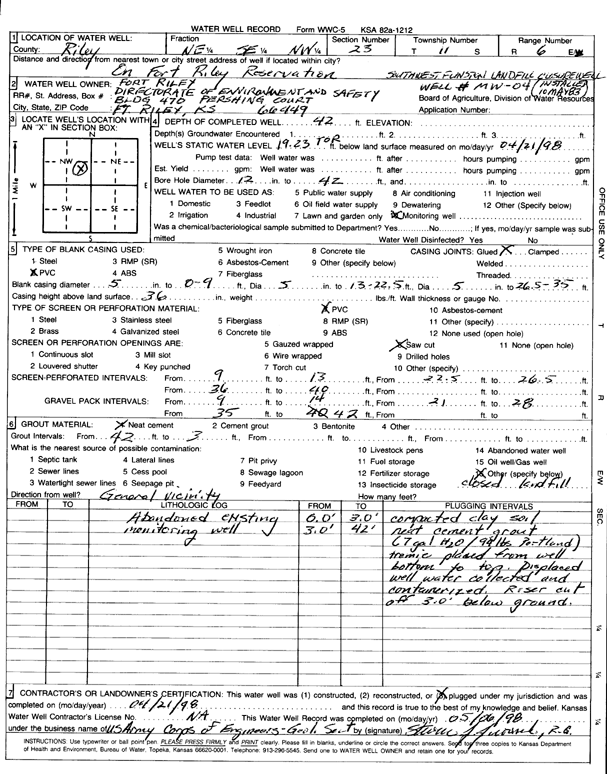 WATER WELL RECORD Form WWC-5 KSA 82a-1212
1 LOCATION OF WATER WELL: Fraction Section Number Township Number Range Number
County: Riley NE ¼ SE ¼ NW ¼ 23 T 11 S R 6 E
Distance and direction from nearest town or city street address of well if located within city?
On Fort Riley Reservation SOUTHWEST FUNSTON LANDFILL
2 WATER WELL OWNER: FORT RILEY WELL # MW-04
RR#, St. Address, Box #: DIRECTORATE OF ENVIRONMENT AND SAFETY Board of Agriculture, Division of Water Resources
BLDG 470 PERSHING COURT
City, State, ZIP Code FT. RILEY, KS 66449 Application Number:
3 LOCATE WELL'S LOCATION WITH AN "X" IN SECTION BOX:
N
NW NE
W E
SW SE
S
1 Mile
4 DEPTH OF COMPLETED WELL 42 ft. ELEVATION:
Depth(s) Groundwater Encountered 1. ft. 2. ft. 3. ft.
WELL'S STATIC WATER LEVEL 19.23 TOR ft. below land surface measured on mo/day/yr 04/21/98
Pump test data: Well water was ft. after hours pumping gpm
Est. Yield gpm: Well water was ft. after hours pumping gpm
Bore Hole Diameter 12 in. to 42 ft., and in. to ft.
WELL WATER TO BE USED AS: 5 Public water supply 8 Air conditioning 11 Injection well
1 Domestic 3 Feedlot 6 Oil field water supply 9 Dewatering 12 Other (Specify below)
2 Irrigation 4 Industrial 7 Lawn and garden only X Monitoring well
Was a chemical/bacteriological sample submitted to Department? Yes No; If yes, mo/day/yr sample was submitted
Water Well Disinfected? Yes No
5 TYPE OF BLANK CASING USED: 5 Wrought iron 8 Concrete tile CASING JOINTS: Glued X Clamped
1 Steel 3 RMP (SR) 6 Asbestos-Cement 9 Other (specify below) Welded
X PVC 4 ABS 7 Fiberglass Threaded
Blank casing diameter 5 in. to 0-9 ft., Dia 5 in. to 13-22.5 ft., Dia 5 in. to 26.5-35 ft.
Casing height above land surface 36 in., weight lbs./ft. Wall thickness or gauge No.
TYPE OF SCREEN OR PERFORATION MATERIAL: X PVC 10 Asbestos-cement
1 Steel 3 Stainless steel 5 Fiberglass 8 RMP (SR) 11 Other (specify)
2 Brass 4 Galvanized steel 6 Concrete tile 9 ABS 12 None used (open hole)
SCREEN OR PERFORATION OPENINGS ARE: 5 Gauzed wrapped X Saw cut 11 None (open hole)
1 Continuous slot 3 Mill slot 6 Wire wrapped 9 Drilled holes
2 Louvered shutter 4 Key punched 7 Torch cut 10 Other (specify)
SCREEN-PERFORATED INTERVALS: From 9 ft. to 13 ft., From 22.5 ft. to 26.5 ft.
From 36 ft. to 40 ft., From ft. to ft.
GRAVEL PACK INTERVALS: From 9 ft. to 14 ft., From 21 ft. to 28 ft.
From 35 ft. to 42 ft., From ft. to ft.
6 GROUT MATERIAL: X Neat cement 2 Cement grout 3 Bentonite 4 Other
Grout Intervals: From 42 ft. to 3 ft., From ft. to ft., From ft. to ft.
What is the nearest source of possible contamination: 10 Livestock pens 14 Abandoned water well
1 Septic tank 4 Lateral lines 7 Pit privy 11 Fuel storage 15 Oil well/Gas well
2 Sewer lines 5 Cess pool 8 Sewage lagoon 12 Fertilizer storage X Other (specify below)
3 Watertight sewer lines 6 Seepage pit 9 Feedyard 13 Insecticide storage closed landfill
Direction from well? General Vicinity How many feet?
FROM TO LITHOLOGIC LOG FROM TO PLUGGING INTERVALS
Abandoned existing 0.0' 3.0' compacted clay soil
monitoring well 3.0' 42' neat cement grout
(7 gal H2O/94 lbs. Portland)
tremie placed from well
bottom to top. Displaced
well water collected and
containerized. Riser cut
off 3.0' below ground.
7 CONTRACTOR'S OR LANDOWNER'S CERTIFICATION: This water well was (1) constructed, (2) reconstructed, or (3) plugged under my jurisdiction and was
completed on (mo/day/year) 04/21/98 and this record is true to the best of my knowledge and belief. Kansas
Water Well Contractor's License No. NA This Water Well Record was completed on (mo/day/yr) 05/06/98
under the business name of US Army Corps of Engineers-Geol. Sect by (signature)
INSTRUCTIONS: Use typewriter or ball point pen. PLEASE PRESS FIRMLY and PRINT clearly. Please fill in blanks, underline or circle the correct answers. Send top three copies to Kansas Department
of Health and Environment, Bureau of Water, Topeka, Kansas 66620-0001. Telephone: 913-296-5545. Send one to WATER WELL OWNER and retain one for your records.
OFFICE USE ONLY
T
R
E/W
SEC.
¼
¼
¼